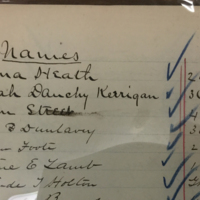 Names
na Heath
ah Danchy Kerrigan
n Street
E Dunlavy
w Foote
ne E Lamb
ude I Holton